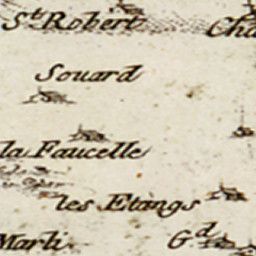 St Robert
Souard
la Faucelle
les Etangs
Marli
Gd